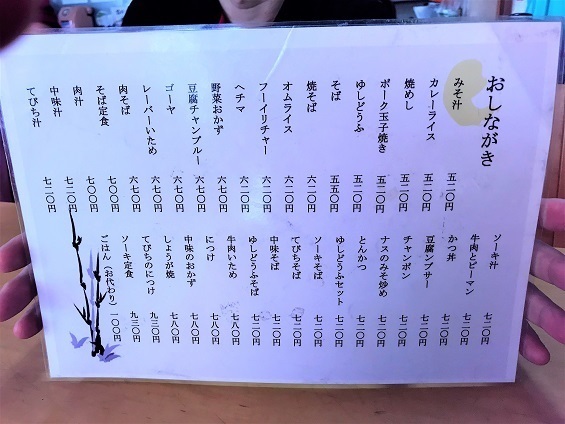 おしながき
みそ汁 五二〇円
カレーライス 五二〇円
焼めし 五二〇円
ポーク玉子焼き 五二〇円
ゆしどうふ 五二〇円
そば 五五〇円
焼そば 六二〇円
オムライス 六二〇円
フーイリチャー 六二〇円
ヘチマ 六二〇円
野菜おかず 六七〇円
豆腐チャンプルー 六七〇円
ゴーヤ 六七〇円
レーバーいため 六七〇円
肉そば 六七〇円
そば定食 七〇〇円
肉汁 七〇〇円
中味汁 七二〇円
てびち汁 七二〇円
ソーキ汁 七二〇円
牛肉とピーマン 七二〇円
かつ丼 七二〇円
豆腐ンブサー 七二〇円
チャンポン 七二〇円
ナスのみそ炒め 七二〇円
とんかつ 七二〇円
ゆしどうふセット 七二〇円
ソーキそば 七二〇円
てびちそば 七二〇円
中味そば 七二〇円
ゆしどうふそば 七二〇円
牛肉いため 七八〇円
につけ 七八〇円
中味のおかず 七八〇円
しょうが焼 七八〇円
てびちのにつけ 九三〇円
ソーキ定食 九三〇円
ごはん(お代わり) 一〇〇円